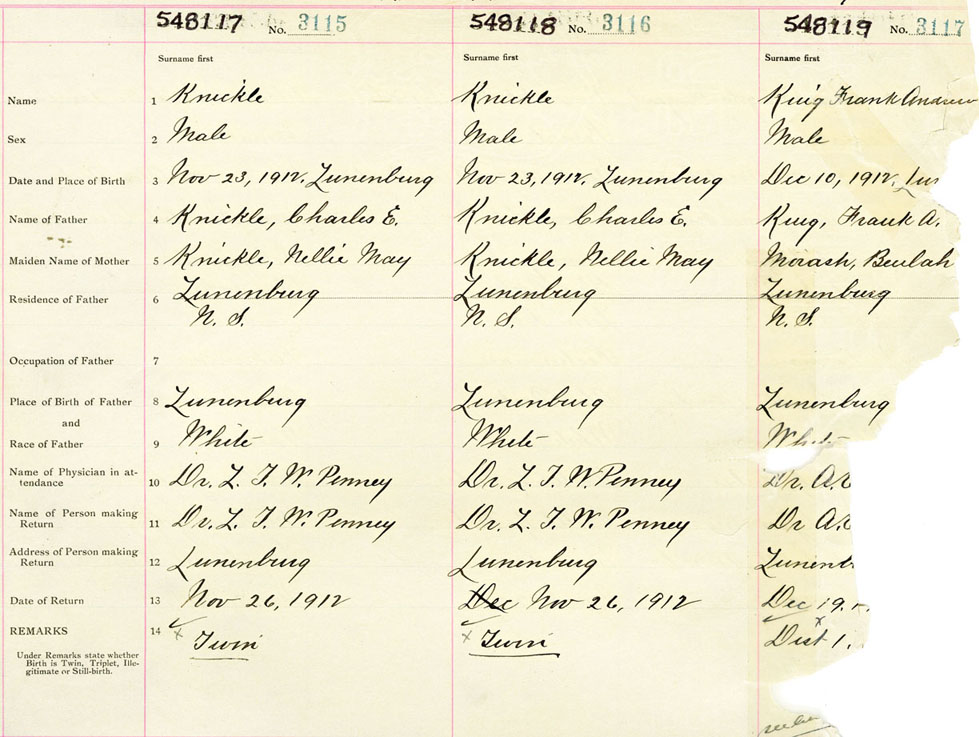 548117 No. 3115 548118 No. 3116 548119 No. 3117
Surname first Surname first Surname first
Name 1 Knickle Knickle King Frank Andrew
Sex 2 Male Male Male
Date and Place of Birth 3 Nov 23, 1912, Lunenburg Nov 23, 1912, Lunenburg Dec 10, 1912, Lun
Name of Father 4 Knickle, Charles E. Knickle, Charles E. King, Frank A.
Maiden Name of Mother 5 Knickle, Nellie May Knickle, Nellie May Morash, Beulah
Residence of Father 6 Lunenburg Lunenburg Lunenburg
N. S. N. S. N. S.
Occupation of Father 7
Place of Birth of Father 8 Lunenburg Lunenburg Lunenburg
and
Race of Father 9 White White White
Name of Physician in at-
tendance 10 Dr. L. T. W. Penney Dr. L. T. W. Penney Dr. A.
Name of Person making
Return 11 Dr. L. T. W. Penney Dr. L. T. W. Penney Dr A.
Address of Person making
Return 12 Lunenburg Lunenburg Lunenb
Date of Return 13 Nov 26, 1912 Dec Nov 26, 1912 Dec 19,
REMARKS 14 x Twin x Twin x Dist 1.
Under Remarks state whether
Birth is Twin, Triplet, Ille-
gitimate or Still-birth.